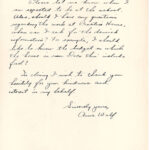 Please let me know when I
am expected to be at the school.
Also, should I have any questions
regarding the work at Christie House,
whom can I ask for the desired
information? For example, I should
like to know the budget on which
the house is run. Does this include
food?
In closing I wish to thank you
kindly for your kindness and
interest in my behalf.
Sincerely yours,
Anne Wolf